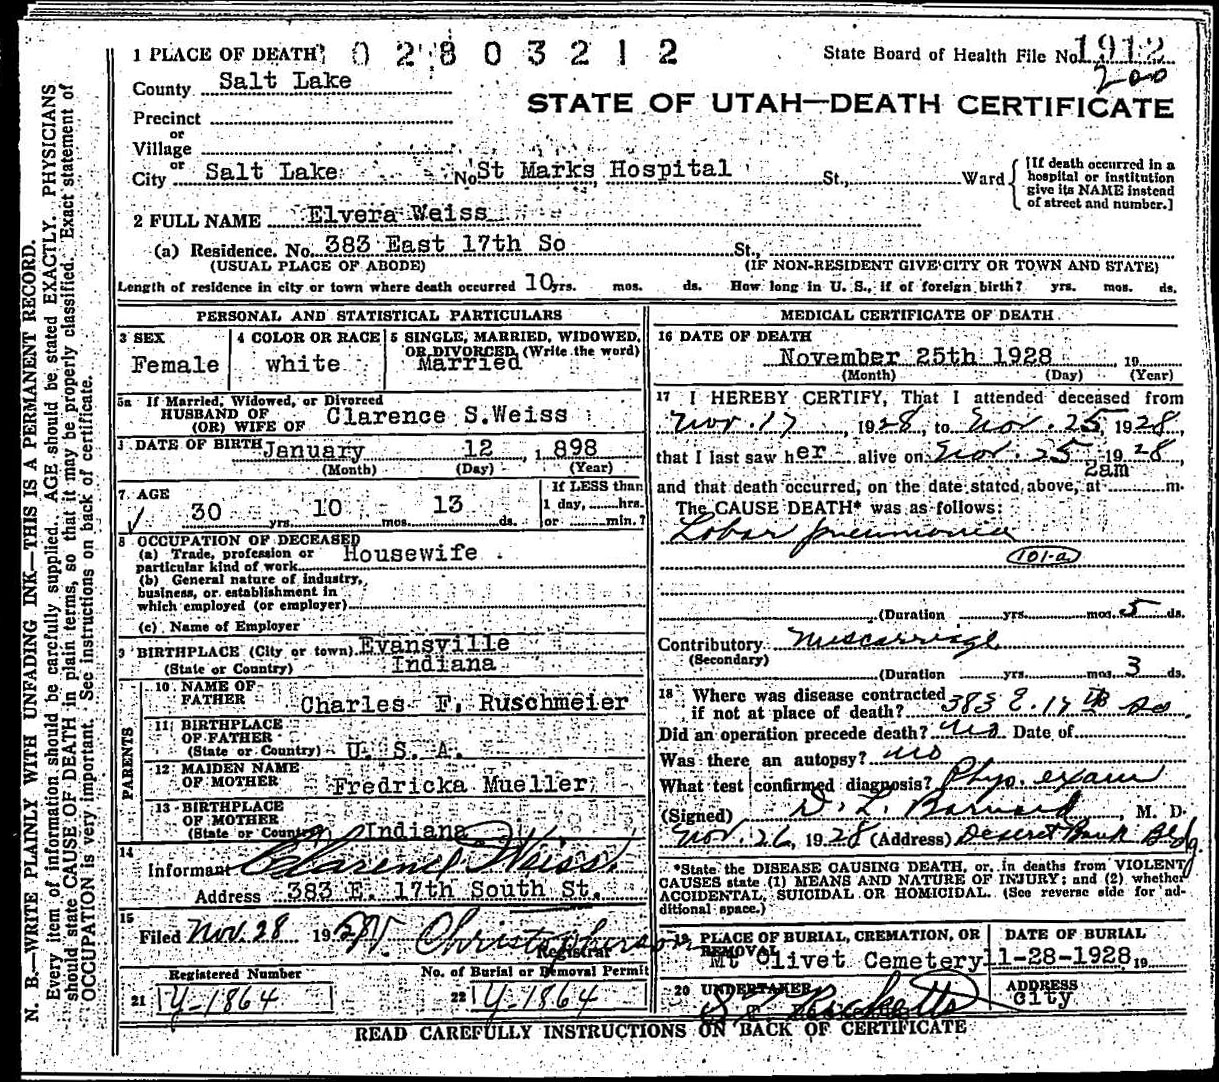 1 PLACE OF DEATH 0 2 8 0 3 2 1 2 State Board of Health File No. 1912
200
County Salt Lake
STATE OF UTAH—DEATH CERTIFICATE
Precinct
or
Village
or
City Salt Lake No. St Marks Hospital St., Ward
[If death occurred in a hospital or institution give its NAME instead of street and number.]
2 FULL NAME Elvera Weiss
(a) Residence. No. 383 East 17th So St.,
(USUAL PLACE OF ABODE) (IF NON-RESIDENT GIVE CITY OR TOWN AND STATE)
Length of residence in city or town where death occurred 10 yrs. mos. ds. How long in U. S., if of foreign birth? yrs. mos. ds.
PERSONAL AND STATISTICAL PARTICULARS
3 SEX
Female
4 COLOR OR RACE
white
5 SINGLE, MARRIED, WIDOWED,
OR DIVORCED (Write the word)
Married
5a If Married, Widowed, or Divorced
HUSBAND OF
(OR) WIFE OF Clarence S.Weiss
DATE OF BIRTH January 12, 1898
(Month) (Day) (Year)
7 AGE
30 yrs. 10 mos. 13 ds.
If LESS than
1 day, hrs.
or min.?
8 OCCUPATION OF DECEASED
(a) Trade, profession or
particular kind of work Housewife
(b) General nature of industry,
business, or establishment in
which employed (or employer)
(c) Name of Employer
9 BIRTHPLACE (City or town) Evansville
(State or Country) Indiana
PARENTS
10 NAME OF
FATHER Charles F. Ruschmeier
11 BIRTHPLACE
OF FATHER
(State or Country) U. S. A.
12 MAIDEN NAME
OF MOTHER Fredricka Mueller
13 BIRTHPLACE
OF MOTHER
(State or Country) Indiana
14
Informant Clarence Weiss
Address 383 E. 17th South St.
15
Filed Nov. 28 1928 Christopherson
Registrar
Registered Number
21 Y-1864
No. of Burial or Removal Permit
22 Y-1864
MEDICAL CERTIFICATE OF DEATH
16 DATE OF DEATH
November 25th 1928 19
(Month) (Day) (Year)
17 I HEREBY CERTIFY, That I attended deceased from
Nov. 17, 1928, to Nov. 25, 1928,
that I last saw her alive on Nov. 25 1928,
and that death occurred, on the date stated above, at 2am m.
The CAUSE DEATH* was as follows:
Lobar pneumonia
101-a
(Duration yrs. mos. 5 ds.
Contributory Miscarriage
(Secondary)
(Duration yrs. mos. 3 ds.
18 Where was disease contracted
if not at place of death? 383 E. 17th So.
Did an operation precede death? no Date of
Was there an autopsy? no
What test confirmed diagnosis? Phys. exam
(Signed) D. L. Barnard, M. D.
Nov. 26, 1928 (Address) Deseret Bank Bldg
*State the DISEASE CAUSING DEATH, or, in deaths from VIOLENT
CAUSES state (1) MEANS AND NATURE OF INJURY; and (2) whether
ACCIDENTAL, SUICIDAL OR HOMICIDAL. (See reverse side for ad-
ditional space.)
19 PLACE OF BURIAL, CREMATION, OR
REMOVAL
Mt Olivet Cemetery
DATE OF BURIAL
11-28-1928 19
20 UNDERTAKER
Ricketts
ADDRESS
City
READ CAREFULLY INSTRUCTIONS ON BACK OF CERTIFICATE
N. B.—WRITE PLAINLY WITH UNFADING INK—THIS IS A PERMANENT RECORD.
Every item of information should be carefully supplied. AGE should be stated EXACTLY. PHYSICIANS
should state CAUSE OF DEATH in plain terms, so that it may be properly classified. Exact statement of
OCCUPATION is very important. See instructions on back of certificate.